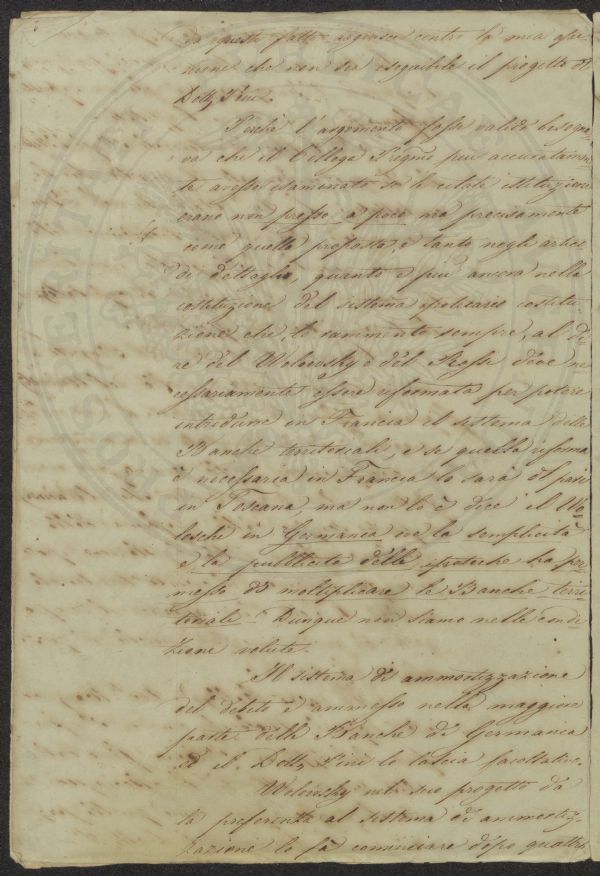 da questo fatto argomento contro la mia opi-
nione che non sia eseguibile il progetto del
Dott. Pini.
Perchè l'argomento fosse valido bisogna-
va che il Collega Pregmo più accuratamen-
te avesse esaminato se le citate istituzioni
erano non presso a poco ma precisamente
come quella proposta, e tanto negli articoli
di dettaglio, quanto e più ancora nella
costituzione del sistema ipotecario costitu-
zione che, lo rammento sempre, al di-
re del Wolowsky e del Rossi deve ne-
cessariamente essere riformata per potere
introdurre in Francia il sistema delle
Banche territoriali, e se questa riforma
è necessaria in Francia lo sarà al pari
in Toscana, ma non lo è dice il Wo-
loschi in Germania ove la semplicità
e la pubblicità delle ipoteche ha per-
messo di moltiplicare le Banche terri-
toriale - Dunque non siamo nelle condi-
zione volute.
Il sistema di ammortizzazione
del debito è ammesso nella maggiore
parte delle Banche di Germania
ed il Dott. Pini lo lascia facoltativo.
Wolowsky nel suo progetto dà
la preferenza al sistema di ammortiz-
zazione lo fà cominciare dopo quattro